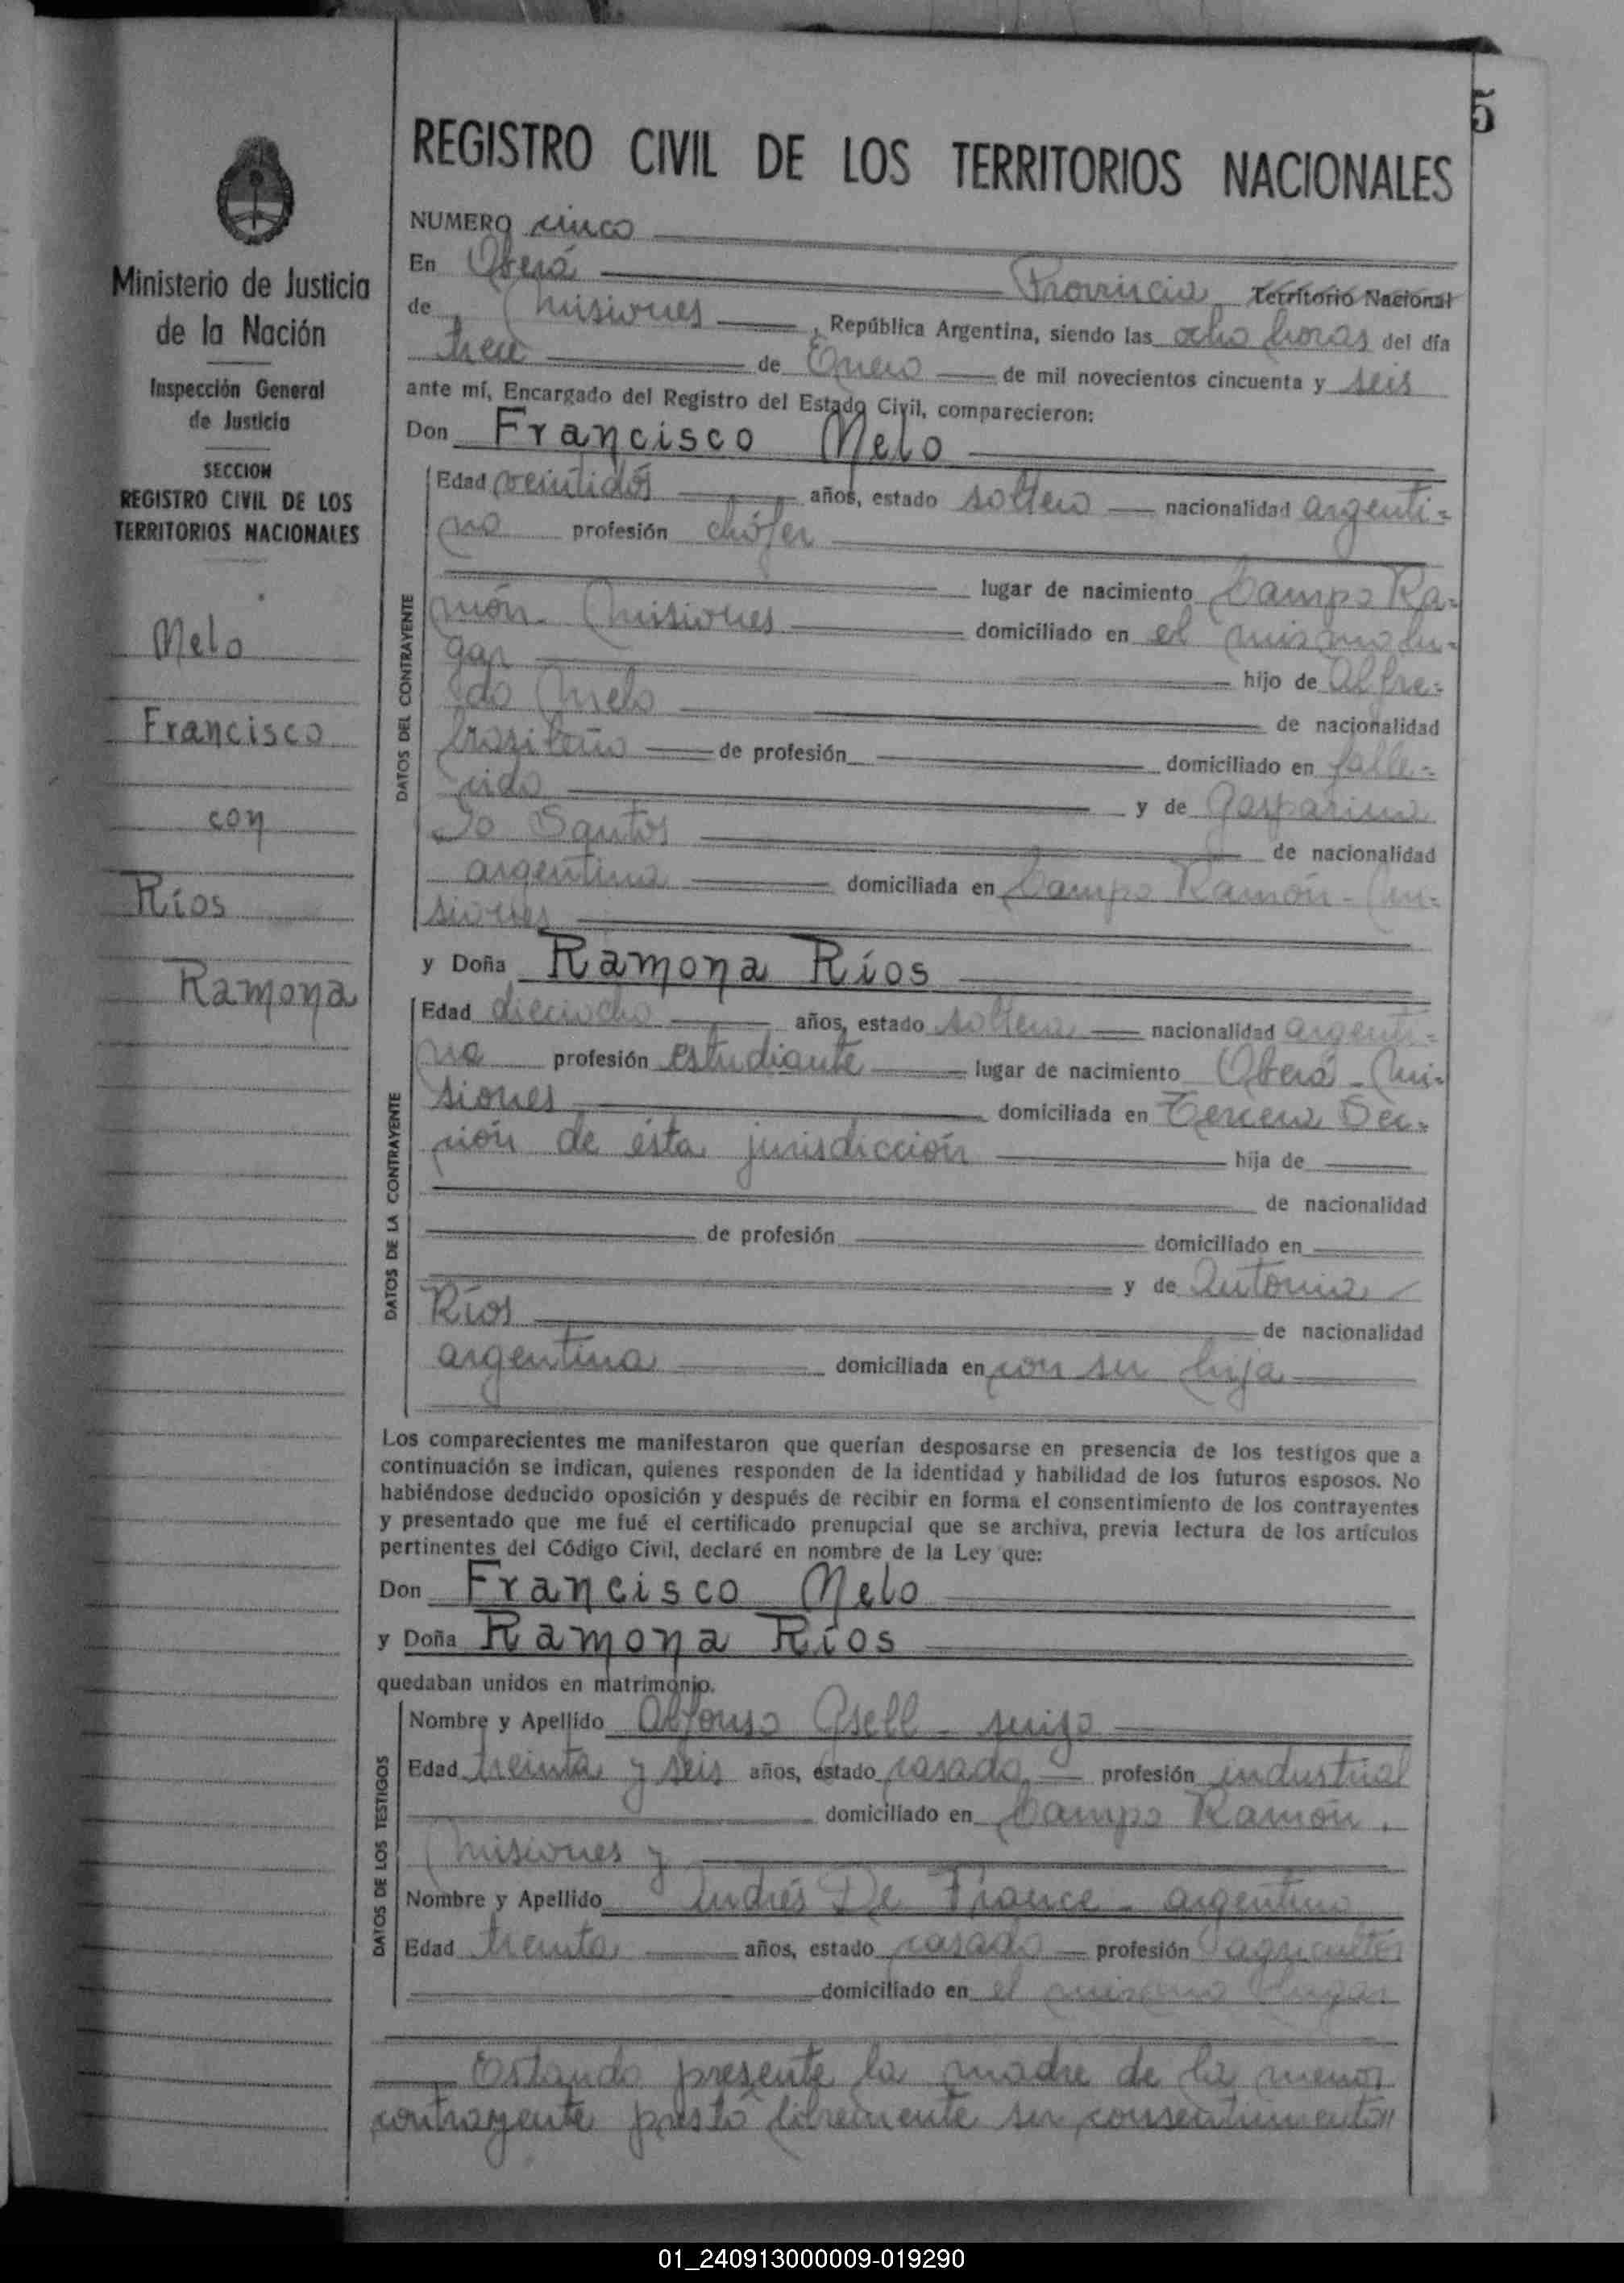 5
Ministerio de Justicia
de la Nación
Inspección General
de Justicia
SECCION
REGISTRO CIVIL DE LOS
TERRITORIOS NACIONALES
Melo
Francisco
con
Ríos
Ramona
REGISTRO CIVIL DE LOS TERRITORIOS NACIONALES
NUMERO cinco
En Oberá Provincia Territorio Nacional
de Misiones, República Argentina, siendo las ocho horas del día
trece de Enero de mil novecientos cincuenta y seis
ante mí, Encargado del Registro del Estado Civil, comparecieron:
Don Francisco Melo
DATOS DEL CONTRAYENTE
Edad veintidós años, estado soltero nacionalidad argenti=
no profesión chófer
lugar de nacimiento Campo Ra=
món - Misiones domiciliado en el mismo lu=
gar hijo de Alfre=
do Melo de nacionalidad
brasileño de profesión domiciliado en falle=
cido y de Gasparina
Do Santos de nacionalidad
argentina domiciliada en Campo Ramón - Mi=
siones
y Doña Ramona Ríos
DATOS DE LA CONTRAYENTE
Edad dieciocho años, estado soltera nacionalidad argenti=
na profesión estudiante lugar de nacimiento Oberá - Mi=
siones domiciliada en Tercera Sec=
ción de ésta jurisdicción hija de
de nacionalidad
de profesión domiciliado en
y de Antonia
Ríos de nacionalidad
argentina domiciliada en con su hija
Los comparecientes me manifestaron que querían desposarse en presencia de los testigos que a
continuación se indican, quienes responden de la identidad y habilidad de los futuros esposos. No
habiéndose deducido oposición y después de recibir en forma el consentimiento de los contrayentes
y presentado que me fué el certificado prenupcial que se archiva, previa lectura de los artículos
pertinentes del Código Civil, declaré en nombre de la Ley que:
Don Francisco Melo
y Doña Ramona Ríos
quedaban unidos en matrimonio.
DATOS DE LOS TESTIGOS
Nombre y Apellido Alfonso Gsell - suizo
Edad treinta y seis años, estado casado profesión industrial
domiciliado en Campo Ramón.
Misiones y
Nombre y Apellido Andrés De France - argentino
Edad treinta años, estado casado profesión agricultor
domiciliado en el mismo lugar
Estando presente la madre de la menor
contrayente prestó libremente su consentimiento"
01_240913000009-019290